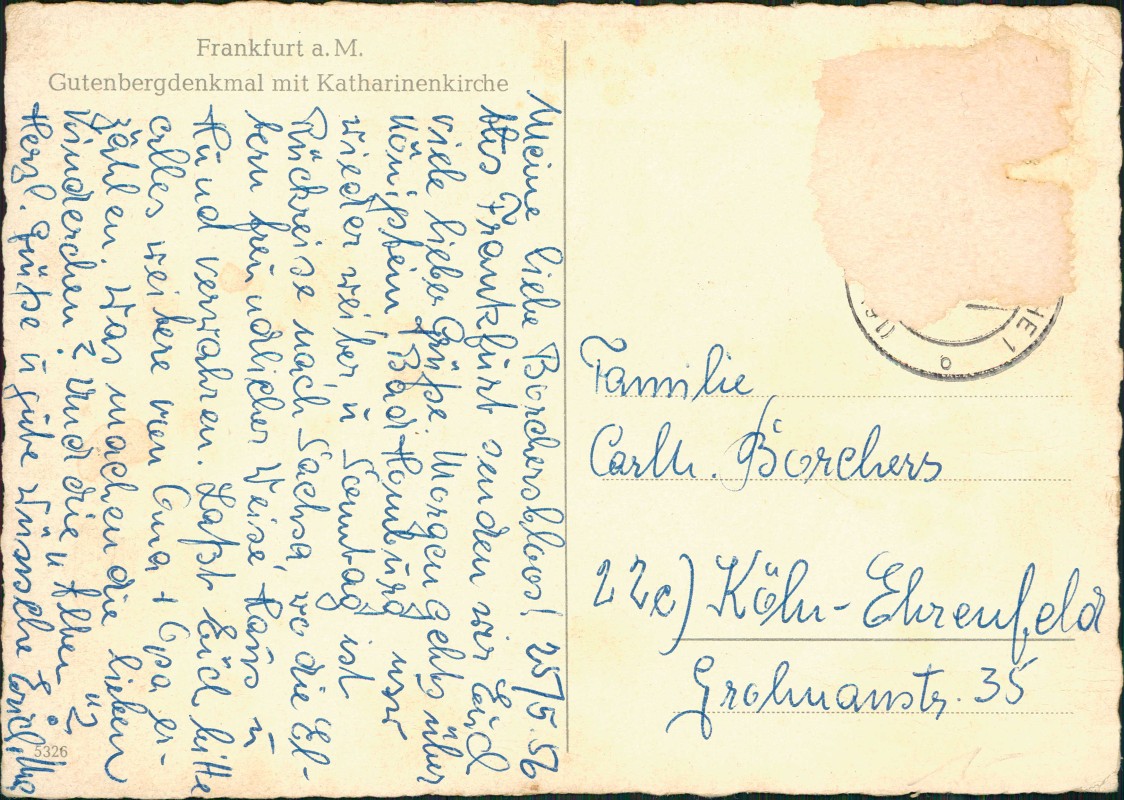 Frankfurt a. M.
Gutenbergdenkmal mit Katharinenkirche
Meine liebe Borchersbloos! 25/5.56
Aus Frankfurt senden wir Euch
viele liebe Grüße. Morgen gehts über
Königstein, Bad Homburg usw
wieder weiter u Sonntag ist
Rückreise nach Sachsa, wo die El-
tern freundlicher Weise Haus u
Hund verwahren. Laßt Euch bitte
alles weitere von Oma + Opa er-
zählen. Was machen die lieben
Kinderchen? Und die u Allen
Herzl. Grüße u gute Wünsche
5326
HE 1
Familie
Carlh. Borchers
22c) Köln-Ehrenfeld
Grolmanstr. 35